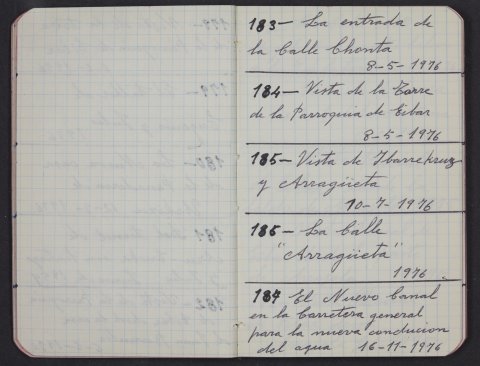 183 - La entrada de
la Calle Chonta
8-5-1976
184 - Vista de la Torre
de la Parroquia de Eibar
8-5-1976
185 - Vista de Ibarrekruz
y Arragüeta
10-7-1976
186 - La Calle
"Arragüeta"
1976
187 El Nuevo Canal
en la Carretera general
para la nueva conducion
del agua 16-11-1976